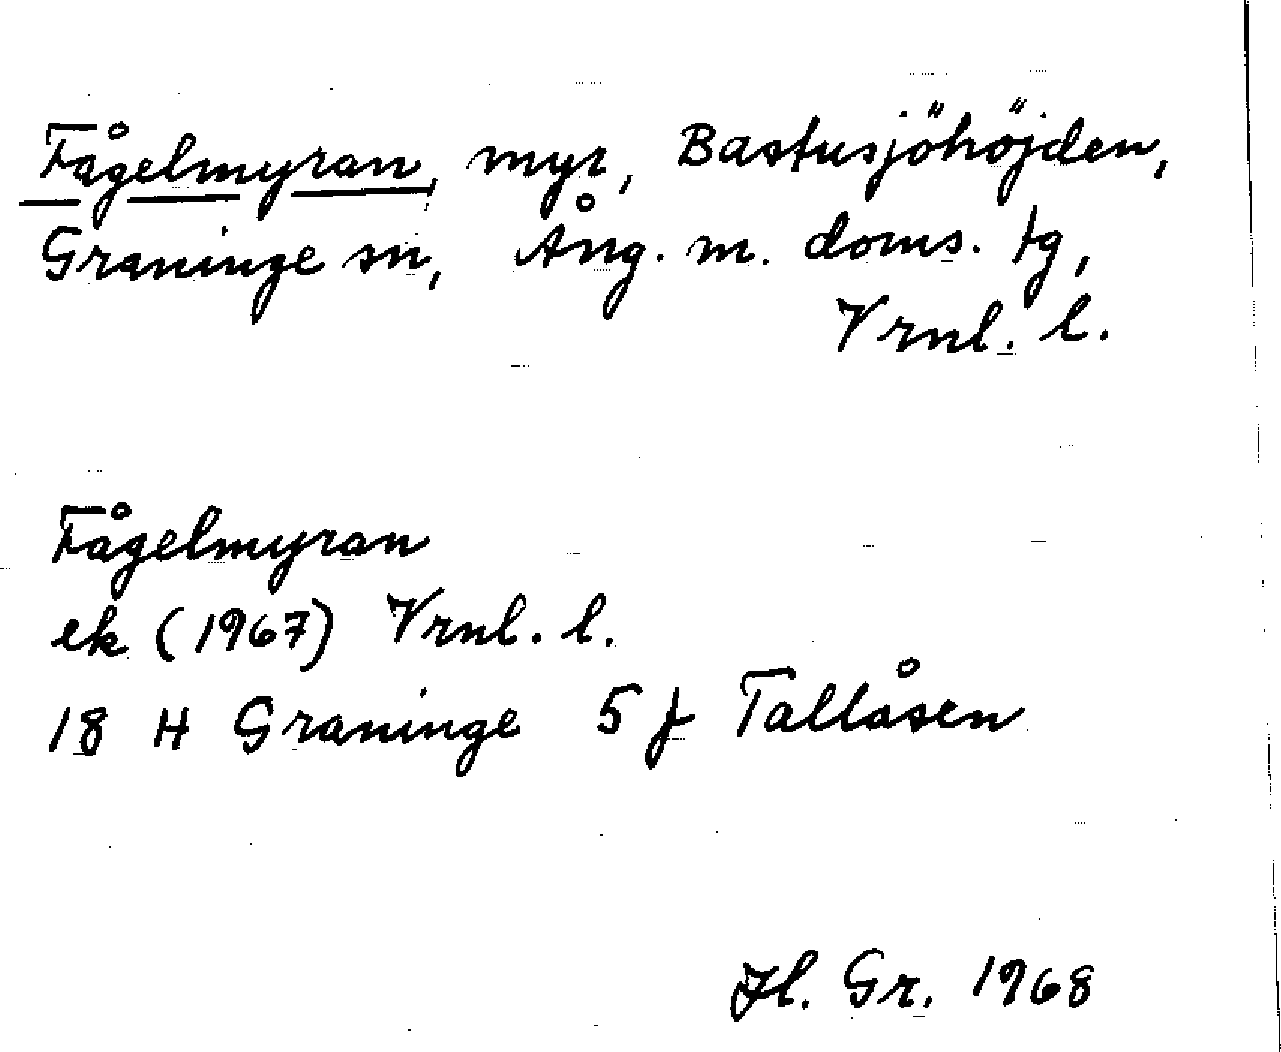 Fågelmyran, myr, Bastusjöhöjden,
Graninge sn, Ång. m. doms. tg,
Vrnl. l.
Fågelmyran
ek (1967) Vrnl. l.
18 H Graninge 5 j Tallåsen
Gr. 1968